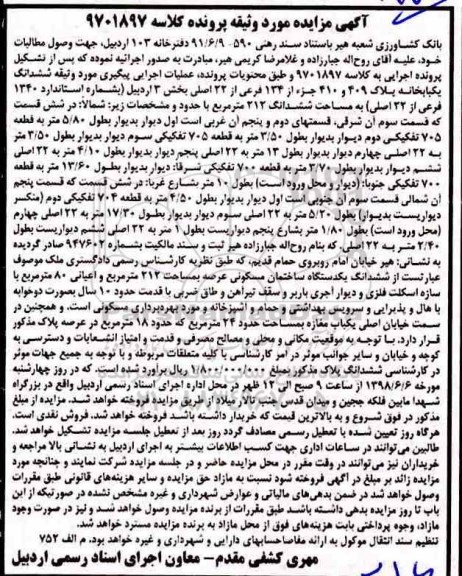 آگهی مزایده مورد وثیقه پرونده کلاسه ۹۷۰۱۸۹۷
بانک کشاورزی شعبه هیر باستناد سند رهنی ۵۹۰- ۹۱/۶/۹ دفترخانه ۱۰۳ اردبیل، جهت وصول مطالبات
خود، علیه آقای روح‌اله جبارزاده و غلامرضا کریمی هیر، مبادرت به صدور اجرائیه نموده که پس از تشکیل
پرونده اجرایی به کلاسه ۹۷۰۱۸۹۷ و طبق محتویات پرونده، عملیات اجرایی پیگیری مورد وثیقه ششدانگ
یکبابخانه پلاک ۴۰۹ و ۴۱۰ جزء از ۱۳۴ فرعی از ۲۲ اصلی بخش ۳ اردبیل (بشماره استاندارد ۱۳۴۰
فرعی از ۲۲ اصلی) به مساحت ششدانگ ۲۱۲ مترمربع با حدود و مشخصات زیر: شمالا: در شش قسمت
که قسمت سوم آن شرقی، قسمتهای دوم و پنجم آن غربی است اول دیوار بدیوار بطول ۵/۸۰ متر به قطعه
۷۰۵ تفکیکی دوم دیوار بدیوار بطول ۳/۵۰ متر به قطعه ۷۰۵ تفکیکی سوم دیوار بدیوار بطول ۳/۵۰ متر
به ۲۲ اصلی چهارم دیوار بدیوار بطول ۱۳ متر به ۲۲ اصلی پنجم دیوار بدیوار بطول ۴/۱۰ متر به ۲۲ اصلی
ششم دیوار بدیوار بطول ۴/۲۰ متر به قطعه ۷۰۰ تفکیکی شرقا: دیوار بدیوار بطول ۱۳/۶۰ متر به قطعه
۷۰۰ تفکیکی جنوبا: (دیوار و محل ورود است) بطول ۱۰ متر بشارع غربا: در شش قسمت که قسمت پنجم
آن شمالی قسمت سوم آن جنوبی است اول دیوار بدیوار بطول ۴/۵۰ متر به قطعه ۷۰۴ تفکیکی دوم (منکسر
دیواریست بدیوار) بطول ۵/۲۰ متر به ۲۲ اصلی سوم دیوار بدیوار بطول ۱۷/۳۰ متر به ۲۲ اصلی چهارم
(محل ورود است) بطول ۱/۸۰ متر بشارع پنجم دیواریست بطول ۱ متر به ۲۲ اصلی ششم دیواریست بطول
۲/۴۰ متر به ۲۲ اصلی، که بنام روح‌اله جبارزاده هیر ثبت و سند مالکیت بشماره ۹۴۷۶۰۲ صادر گردیده
به نشانی: هیر خیابان امام روبروی حمام قدیم، که طبق نظریه کارشناس رسمی دادگستری ملک موصوف
عبارتست از ششدانگ یکدستگاه ساختمان مسکونی عرصه بمساحت ۲۱۲ مترمربع و اعیانی ۸۰ مترمربع با
سازه اسکلت فلزی و دیوار آجری باربر و سقف تیرآهن و طاق ضربی با قدمت حدود ۱۰ سال بصورت دوخوابه
با هال و پذیرایی و سرویس بهداشتی و حمام و آشپزخانه و مورد بهره‌برداری مسکونی است. و همچنین در
سمت خیابان اصلی یکباب مغازه بمساحت حدود ۲۴ مترمربع که حدود ۱۸ مترمربع در عرصه پلاک مذکور
قرار دارد. با توجه به موقعیت مکانی و محلی و مصالح مصرفی و قدمت و امتیاز انشعابات و دسترسی به
کوچه و خیابان و سایر جوانب موثر در امر کارشناسی با کلیه متعلقات مربوطه و با توجه به جمیع جهات موثر
در کارشناسی ششدانگ پلاک مذکور بمبلغ ریال برآورد شده است. که در روز چهارشنبه
مورخه ۱۳۹۸/۶/۶ از ساعت ۹ صبح الی ۱۲ ظهر در محل اداره اجرای اسناد رسمی اردبیل واقع در بزرگراه
شهدا مابین فلکه ججین و میدان قدس جنب تالار میلاد از طریق مزایده فروخته خواهد شد. مزایده از مبلغ
مذکور در فوق شروع و به بالاترین قیمت که خریدار داشته باشد فروخته خواهد شد. فروش نقدی است.
هرگاه روز تعیین شده با تعطیل رسمی مصادف گردد روز بعد از تعطیل جلسه مزایده تشکیل خواهد شد.
طالبین می‌توانند در ساعات اداری جهت کسب اطلاعات بیشتر به اجرای اردبیل به نشانی بالا مراجعه و
خریداران نیز می‌توانند در وقت مقرر در محل مزایده حاضر و در جلسه مزایده شرکت نمایند و چنانچه مورد
مزایده زائد بر مبلغ در آگهی فروخته شود نسبت به مازاد حق مزایده و سایر هزینه‌های قانونی طبق مقررات
وصول خواهد شد در ضمن بدهی‌های مالیاتی و عوارض شهرداری و غیره مشخص نشده در صورتیکه از این
باب تا روز مزایده بدهی داشته باشد طبق مقررات از برنده مزایده وصول خواهد شد و نیز در صورت وجود
مازاد، وجوه پرداختی بابت هزینه‌های فوق از محل مازاد به برنده مزایده مسترد خواهد شد.
تنظیم سند انتقال موکول به ارائه مفاصاحسابهای دارایی و شهرداری و غیره خواهد بود. م الف ۷۵۲
مهری کشفی مقدم- معاون اجرای اسناد رسمی اردبیل